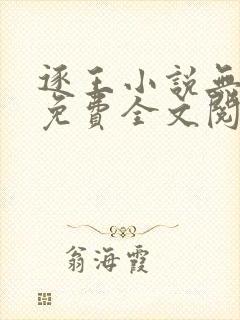 逐王小說無
免費全文閱
翁海霞